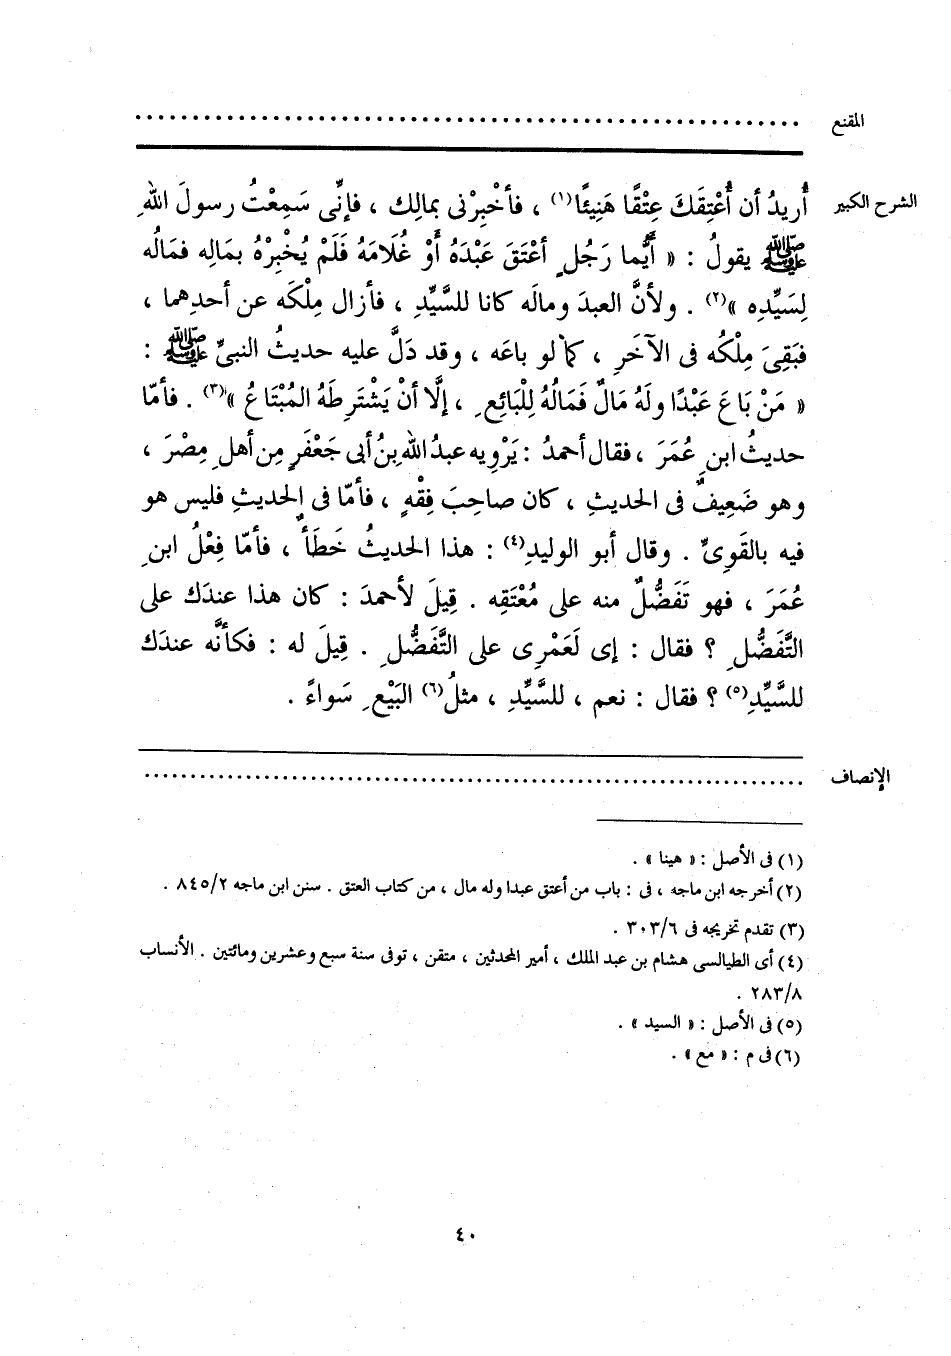 المقنع ............................................................
الشرح الكبير أُريدُ أن أُعْتِقَكَ عِتْقًا هَنِيئًا(١) ، فأخْبِرْنى بمالِك ، فإنِّى سَمِعْتُ رسولَ اللهِ
ﷺ يقولُ : « أيُّما رَجُلٍ أعْتَقَ عَبْدَهُ أَوْ غُلَامَهُ فَلَمْ يُخْبِرْهُ بمَالِه فمَالُه
لِسَيِّدِه »(٢) . ولأنَّ العبدَ ومالَه كانا للسَّيِّدِ ، فأزال مِلْكَه عن أحدِهما ،
فبَقِىَ مِلْكُه فى الآخَرِ ، كما لو باعَه ، وقد دَلَّ عليه حديثُ النبىِّ ﷺ :
« مَنْ بَاعَ عَبْدًا ولَهُ مَالٌ فَمَالُهُ لِلْبَائِعِ ، إلَّا أنْ يَشْتَرِطَهُ المُبْتَاعُ »(٣) . فأمّا
حديثُ ابنِ عُمَرَ ، فقال أحمدُ : يَرْوِيه عبدُ اللهِ بنُ أبى جَعْفَرٍ مِن أهلِ مِصْرَ ،
وهو ضَعِيفٌ فى الحديثِ ، كان صاحِبَ فِقْهٍ ، فأمّا فى الحديثِ فليس هو
فيه بالقَوِىِّ . وقال أبو الوليدِ(٤) : هذا الحديثُ خَطَأٌ ، فأمّا فِعْلُ ابنِ
عُمَرَ ، فهو تَفَضُّلٌ منه على مُعْتَقِه . قِيلَ لأحمدَ : كان هذا عندَك على
التَّفَضُّلِ ؟ فقال : إى لَعَمْرِى على التَّفَضُّلِ . قِيلَ له : فكأنَّه عندَك
للسَّيِّدِ(٥) ؟ فقال : نعم ، للسَّيِّدِ ، مثلُ(٦) البَيْعِ سَواءً .
الإنصاف ............................................................
(١) فى الأصل : « هينا » .
(٢) أخرجه ابن ماجه ، فى : باب من أعتق عبدا وله مال ، من كتاب العتق . سنن ابن ماجه ٨٤٥/٢ .
(٣) تقدم تخريجه فى ٣٠٣/٦ .
(٤) أى الطيالسى هشام بن عبد الملك ، أمير المحدثين ، متقن ، توفى سنة سبع وعشرين ومائتين . الأنساب
٢٨٣/٨ .
(٥) فى الأصل : « السيد » .
(٦) فى م : « مع » .
٤٠